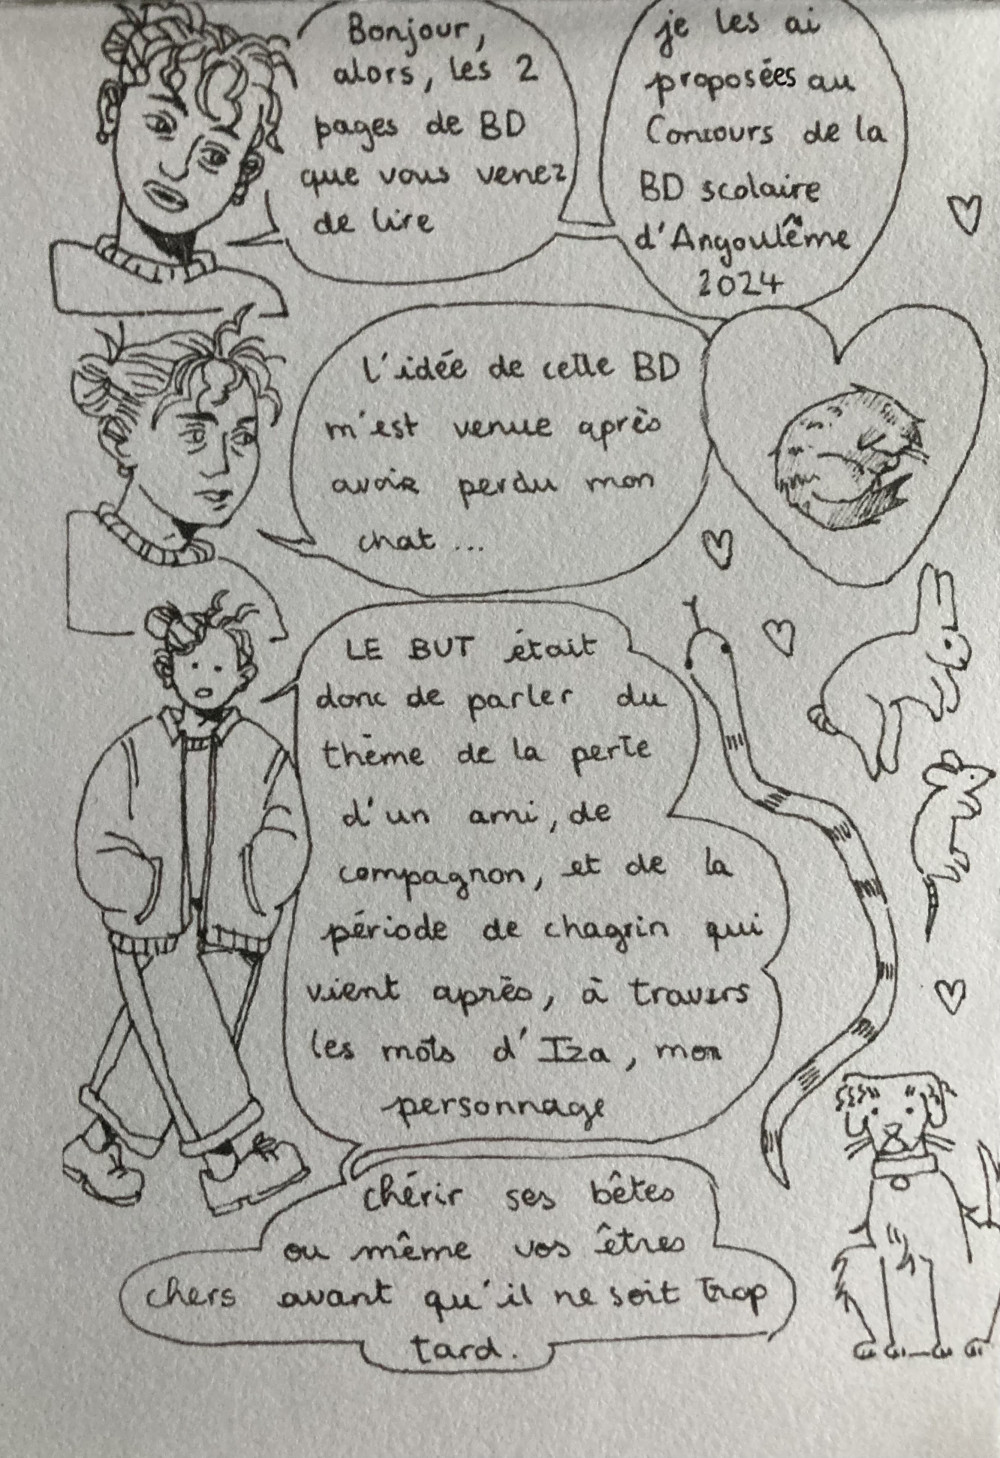 Bonjour,
alors, les 2
pages de BD
que vous venez
de lire
je les ai
proposées au
Concours de la
BD scolaire
d'Angoulême
2024
L'idée de cette BD
m'est venue après
avoir perdu mon
chat ...
LE BUT était
donc de parler du
thème de la perte
d'un ami, de
compagnon, et de la
période de chagrin qui
vient après, à travers
les mots d'Iza, mon
personnage
chérir ses bêtes
ou même vos êtres
chers avant qu'il ne soit trop
tard.